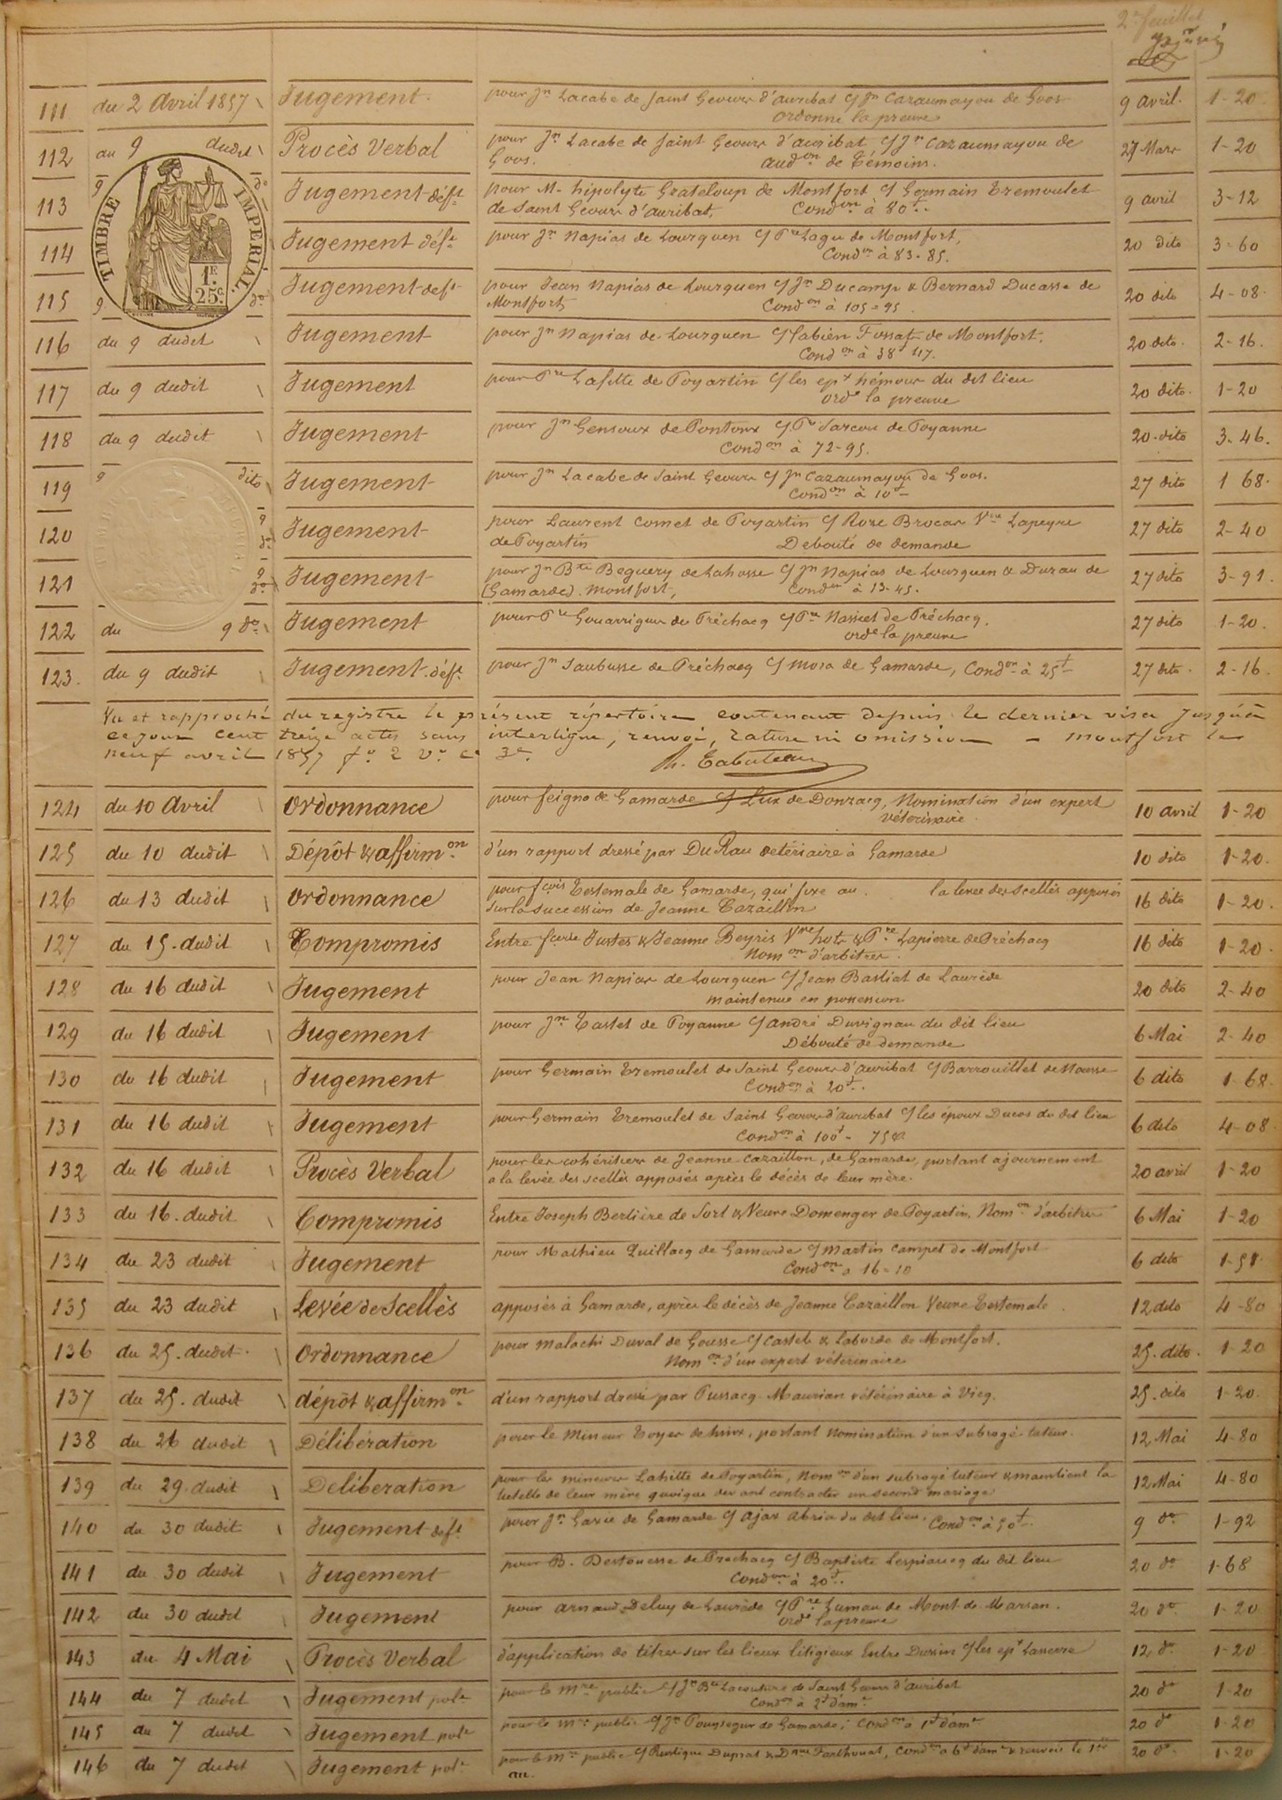 2me feuillet
111 du 2 Avril 1857 Jugement. pour Jn Lacabe de Saint Geours d'auribat c/ Jn Cazaumayou de Goos. 9 avril. 1-20
ordonne la preuve
112 au 9 dudit Procès Verbal pour Jn Lacabe de Saint Geours d'auribat c/ Jn Cazaumayou de 27 Mars 1-20
Goos. audon de témoins.
TIMBRE IMPERIAL.
1F. 25c.
113 9 do Jugement déft pour Mr hipolyte Grateloup de Montfort c/ Germain Tremoulet 9 avril 3-12
de Saint Geours d'auribat. Condon à 80f..
114 Jugement déft pour Jn Napias de Lourquen c/ Pre Lague de Montfort, 20 dito 3-60
Condon à 83-85.
115 9 do Jugement deft pour Jean Napias de Lourquen c/ Jn Ducamp & Bernard Ducasse de 20 dito 4-08
Montfort Condon à 105-95
116 du 9 dudit Jugement pour Jn Napias de Lourquen c/ fabien de Montfort. 20 dito. 2-16.
Condon à 38f 47.
117 du 9 dudit Jugement pour Pre Lafitte de Poyartin c/ les epx hémour du dit lieu 20 dito. 1-20
orde la preuve
118 du 9 dudit Jugement pour Jn Gensoux de Pontonx c/ Pre Sarcou de Poyanne 20 dito 3-46.
Condon à 72-95.
119 9 dito Jugement pour Jn Lacabe de Saint Geours c/ Jn Cazaumayou de Goos. 27 dito 1 68.
Condon à 10f
120 9 do Jugement pour Laurent Comet de Poyartin c/ Roze Brocas Vve Lapeyre 27 dito 2-40
de Poyartin Debouté de demande
121 9 do Jugement pour Jn Bte Beguery de Lahosse c/ Jn Napias de Lourquen & Durau de 27 dito 3-91.
(Gamarde) Montfort, Condon à 13-45.
122 du 9 do Jugement pour Pre Gouarrigue de Préchacq c/ Pre Nassiet de Préchacq. 27 dito 1-20.
orde la preuve
123. du 9 dudit Jugement déft pour Jn Saubusse de Préchacq c/ Mora de Gamarde, Condon à 25f 27 dito. 2-16.
Vu et rapproché du registre le présent répertoire contenant depuis le dernier visa jusqu'à
ce jour cent treize actes sans interligne, renvoi, rature ni omission - Montfort le
neuf avril 1857 fo 2 vo ce 3e. h. Tabuteau
124 du 10 Avril Ordonnance pour feigna de Gamarde c/ Lux de Donzacq, Nomination d'un expert 10 avril 1-20
véterinaire
125 du 10 dudit Dépôt & affirmon d'un rapport dressé par DuRau veteriaire à Gamarde 10 dito 1-20.
126 du 13 dudit Ordonnance pour fçois Testemale de Gamarde, qui fixe au . la levée des scellés apposés 16 dito 1-20.
sur la succession de Jeanne Cazaillon
127 du 15. dudit Compromis Entre & Jeanne Beyris Vve & Pre Lapierre de Préchacq 16 dito 1-20
Nomon d'arbitres.
128 du 16 dudit Jugement pour Jean Napias de Lourquen c/ Jean Bastiat de Laurède 20 dito 2-40
maintenue en possession
129 du 16 dudit Jugement pour Jn Castet de Poyanne c/ andré Duvignau du dit lieu 6 Mai 2-40
Débouté de demande
130 du 16 dudit Jugement pour Germain Tremoulet de Saint Geours d'auribat c/ Barrouillet de Nousse 6 dito 1-68.
Condon à 20f.
131 du 16 dudit Jugement pour Germain Tremoulet de Saint Geours d'auribat c/ les époux Ducos du dit lieu 6 dito 4-08
Condon à 100f-
132 du 16 dudit Procès Verbal pour les cohéritiers de Jeanne Cazaillon, de Gamarde, portant ajournement 20 avril 1-20
a la levée des scellés apposés après le décès de leur mère.
133 du 16. dudit Compromis Entre Joseph Bertière de Sort & Veuve Domenger de Poyartin. Nomon d'arbitre 6 Mai 1-20
134 du 23 dudit Jugement pour Mathieu Quillacq de Gamarde c/ Martin Campet de Montfort 6 dito
Condon à 16-10
135 du 23 dudit Levée de Scellés apposés à Gamarde, après le décès de Jeanne Cazaillon Veuve Testemale. 12 dito 4-80
136 du 25. dudit. Ordonnance pour Malachi Duval de Gousse c/ Castets & Laborde de Montfort. 25. dito. 1-20
Nomon d'un expert véterinaire
137 du 25. dudit dépôt & affirmon d'un rapport dressé par Pussacq-Maurian vétérinaire à Vicq. 25. dito 1-20.
138 du 26 dudit Délibération pour le Mineur Toyer de hinx, portant Nomination d'un subrogé-tuteur. 12 Mai 4-80
139 du 29 dudit Delibération pour les mineurs Lahitte de Poyartin, Nomon d'un subrogé tuteur & maintient la 12 Mai 4-80
tutelle de leur mère quoique devant contracter un second mariage
140 du 30 dudit Jugement deft pour Jn Garie de Gamarde c/ ajax abria du dit lieu. Condon à 50f 9 do 1-92
141 du 30 dudit Jugement pour B. Destouesse de Prechacq c/ Baptiste Lespiaucq du dit lieu 20 do 1-68
Condon à 20f.
142 du 30 dudit Jugement pour arnaud Deluy de Laurède c/ Pre Luman de Mont de Marsan. 20 do 1-20
orde la preuve
143 du 4 Mai Procès Verbal d'application de titres sur les lieux litigieux Entre c/ les epx Lancere 12 do 1-20
144 du 7 dudit Jugement polce pour le Mre public c/ Jn Bte Lacouture de Saint Geours d'auribat 20 do 1-20
Condon à 2f d'ame
145 du 7 dudit Jugement polce pour le Mre public c/ Jn Pouysegur de Gamarde; Condon à 1f d'ame 20 do 1-20
146 du 7 dudit Jugement polce pour le Mre public c/ Rustique Duprat & Dque Farthouat, Condon à 6f dame & renvoie le 1er 20 do. 1-20
au.